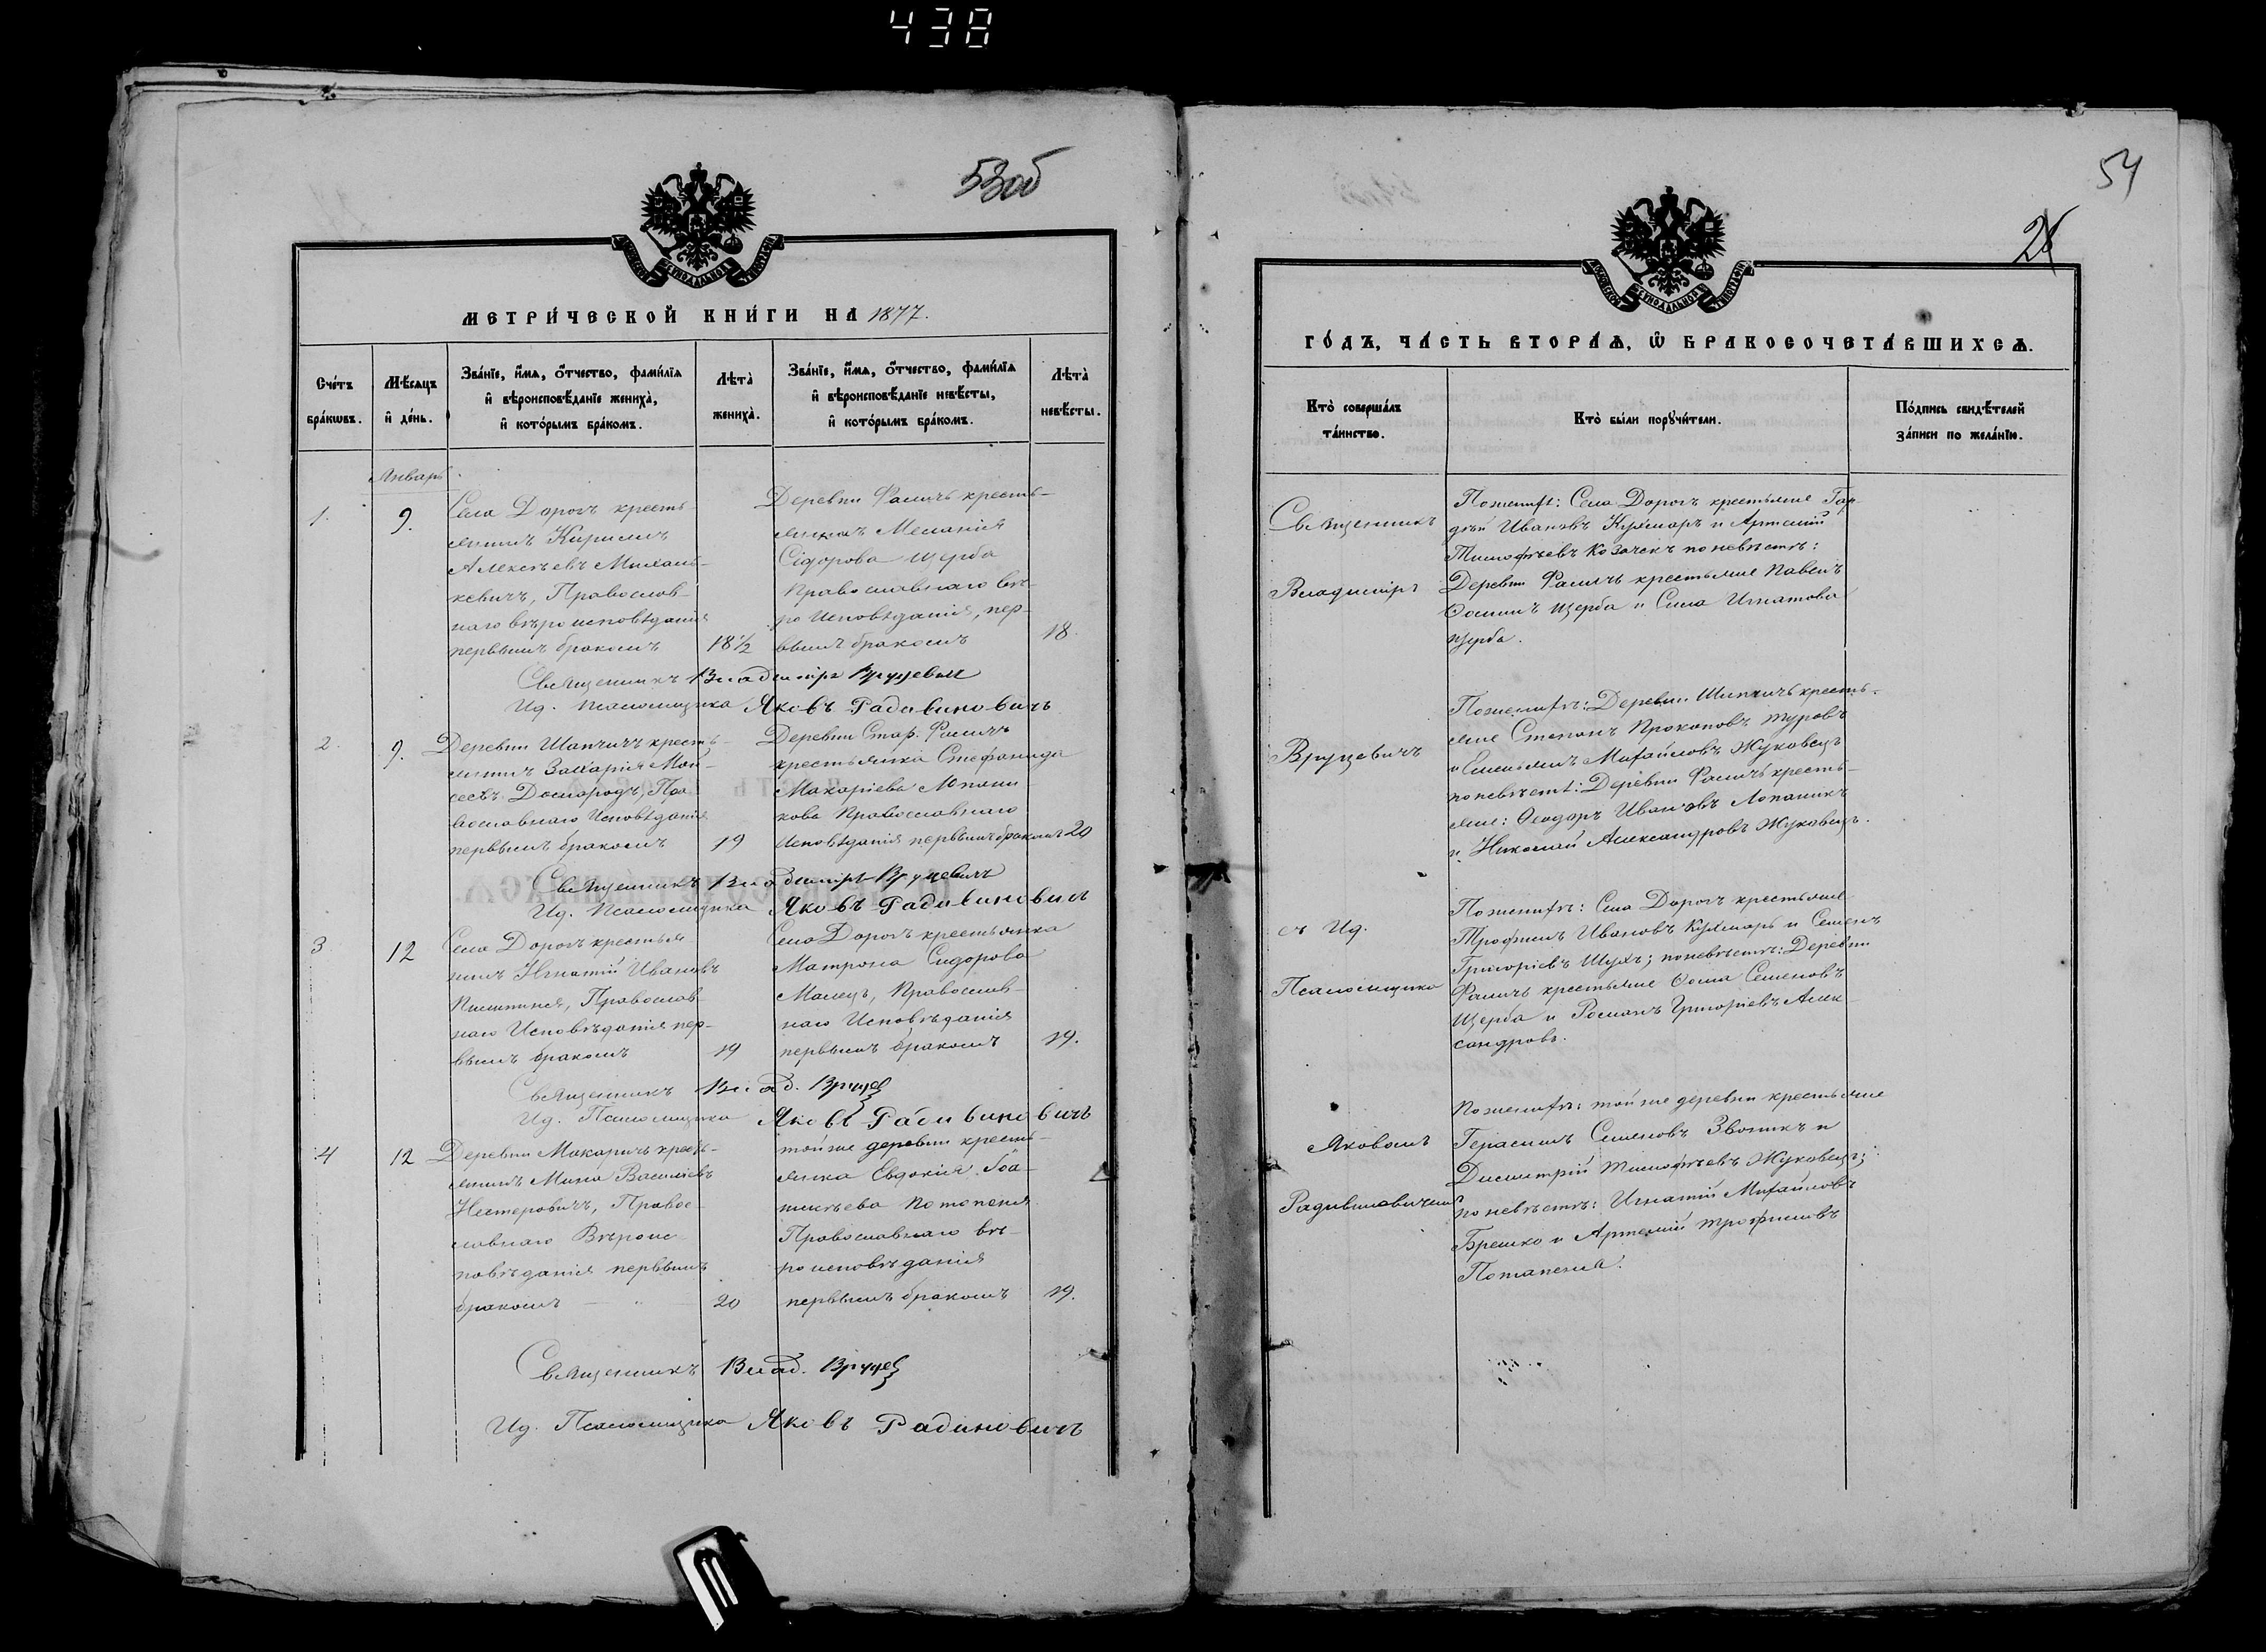 438
53об
МЕТРИ́ЧЕСКОЙ КНИ́ГИ НА 1877.
Сче́тъ бра́кѡвъ.
Мѣ́сѧцъ и҆ де́нь.
Зва́нїе, и҆́мѧ, ѻ҆́тчество, фами́лїѧ и҆ вѣроисповѣ́данїе жениха̀, и҆ кото́рымъ бра́комъ.
Лѣта̀ жениха̀.
Зва́нїе, и҆́мѧ, ѻ҆́тчество, фами́лїѧ и҆ вѣроисповѣ́данїе невѣ́сты, и҆ кото́рымъ бра́комъ.
Лѣта̀ невѣ́сты.
Январь
1.
9.
Села Дорогъ кресть
янинъ Кириллъ
Алексѣевъ Михаль-
кевичъ, Православ-
наго вѣроисповѣданія
первымъ бракомъ
18½
Деревни Фаличъ кресть-
янка Меланія
Сідорова Щерба
Православнаго вѣ-
роисповѣданія, пер-
вымъ бракомъ
18.
Священникъ Владиміръ Вруцевичъ
Ид. псаломщика Яковъ Радивиновичъ
2.
9.
Деревни Шапчичъ кресть-
янинъ Захарія Мой-
сеевъ Домородъ, Пра-
вославнаго Исповѣданія
первымъ бракомъ
19
Деревни Стар. Фаличъ
крестьянка Стефанида
Макаріева Лопани
кова Православнаго
Исповѣданія первымъ бракомъ 20
Священникъ Владиміръ Вруцевичъ
Ид. Псаломщика Яковъ Радивиновичъ
3.
12
Села Дорогъ крестья
нинъ Игнатій Ивановъ
Православ-
наго Исповѣданія пер-
вымъ бракомъ
19
Села Дорогъ крестьянка
Матрона Сидорова
Малецъ, Православ-
наго Исповѣданія
первымъ бракомъ
19.
Священникъ Влад. Вруцев
Ид. Псаломщика Яковъ Радивиновичъ
4
12
Деревни Макаричъ кресть-
янинъ Мина Васильевъ
Нестеровичъ, Правос-
лавнаго Вѣроис
повѣданія первымъ
бракомъ
20
той же деревни кресть-
янка Евдокія
Потапеня
Православнаго вѣ-
роисповѣданія
первымъ бракомъ
19.
Священникъ Влад. Вруцев
Ид. Псаломщика Яковъ Радиновичъ
54
ГО́ДЪ, ЧА́СТЬ ВТОРА́Ѧ, Ѽ БРАКОСОЧЕТА́ВШИХСѦ.
Кто̀ соверша́лъ та́инство.
Кто̀ бы́ли порꙋчи́тели.
По́дпись свидѣ́телей за́писи по жела́нїю.
Священникъ
Владиміръ
Вруцевичъ
съ Ид.
Псаломщика
Яковомъ
Радивиновичемъ
По женихѣ: Села Дорогъ крестьяне Гор-
дѣй Ивановъ Кухмаръ и Артемій
Тимофѣевъ Козачекъ по невѣстѣ:
Деревни Фаличъ крестьяне Павелъ
Ѳоминъ Щерба и Сила Игнатова
Щерба.
По женихѣ: Деревни Шапчичъ кресть-
яне Степанъ Прокоповъ Туровъ
и Емельянъ Михайловъ Жуковецъ
по невѣстѣ: Деревни Фаличъ кресть-
яне: Ѳеодоръ Ивановъ Лопаникъ
и Николай Александровъ Жуковецъ.
По женихѣ: Села Дорогъ крестьяне
Трофимъ Ивановъ Кухмаръ и Семенъ
Григоріевъ Шухъ; по невѣстѣ: Деревни
Фаличъ крестьяне Ѳома Семеновъ
Щерба и Романъ Григоріевъ Алек-
сандровъ.
По женихѣ: той же деревни крестьяне
Герасимъ Семеновъ Звоникъ и
Димитрій Тимофѣевъ Жуковецъ;
по невѣстѣ: Игнатій Михайловъ
Брешко и Артемій Трофимовъ
Потапеня.